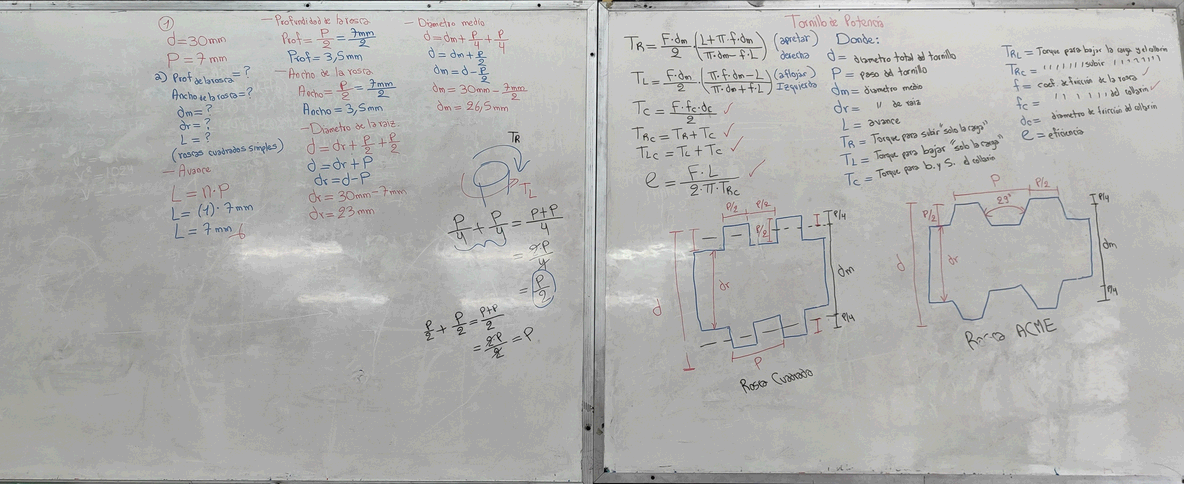 ①
d=30mm
P=7mm
a) Prof de la rosca=?
Ancho de la rosca=?
dm=?
dr=?
L=?
(roscas cuadradas simples)
- Avance
L = n·P
L = (1)·7mm
L = 7mm
- Profundidad de la rosca
Prof = P/2 = 7mm/2
Prof = 3,5mm
- Ancho de la rosca
Ancho = P/2 = 7mm/2
Ancho = 3,5mm
- Diámetro de la raiz
d = dr + P/2 + P/2
d = dr + P
dr = d - P
dr = 30mm - 7mm
dr = 23mm
- Diámetro medio
d = dm + P/4 + P/4
d = dm + P/2
dm = d - P/2
dm = 30mm - 7mm/2
dm = 26,5mm
TR
TL
P/4 + P/4 = P+P/4
= 2P/4
= P/2
P/2 + P/2 = P+P/2
= 2P/2 = P
Tornillo de Potencia
TR = F·dm/2 · (L+π·f·dm/π·dm-f·L) (apretar) derecha
TL = F·dm/2 · (π·f·dm-L/π·dm+f·L) (aflojar) Izquierda
Tc = F·fc·dc/2 ✓
TRc = TR + Tc ✓
TLc = TL + Tc ✓
e = F·L/2·π·TRc ✓
Donde:
d = diametro total del tornillo
P = paso del tornillo
dm = diametro medio
dr = " de raiz
L = avance
TR = Torque para subir "solo la carga"
TL = Torque para bajar "solo la carga"
Tc = Torque para b. y s. el collarin
TRL = Torque para bajar la carga y el collarin
TRc = " " " subir " " " "
f = coef. de fricción de la rosca ✓
fc = " " " " del collarin ✓
dc = diametro de fricción del collarin
e = eficiencia
P/2 P/2
P/2
P/4
d
dr
dm
P/4
P
Rosca Cuadrada
P
P/2
P/2
29°
P/4
d
dr
dm
P/4
Rosca ACME